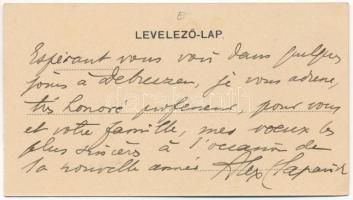 LEVELEZŐ-LAP.
Espérant vous voir dans quelques
jours à Debreczen, je vous adresse,
très honoré professeur, pour vous
et votre famille, mes voeux les
plus sincères à l'occasion de
la nouvelle année Alex